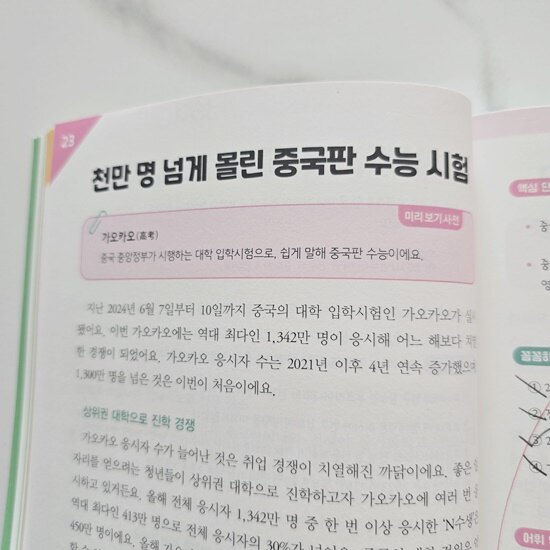 23
천만 명 넘게 몰린 중국판 수능 시험
미리 보기 사전
가오카오(高考)
중국 중앙정부가 시행하는 대학 입학시험으로, 쉽게 말해 중국판 수능이에요.
지난 2024년 6월 7일부터 10일까지 중국의 대학 입학시험인 가오카오가
됐어요. 이번 가오카오에는 역대 최다인 1,342만 명이 응시해 어느 해보다
한 경쟁이 되었어요. 가오카오 응시자 수는 2021년 이후 4년 연속 증가했으며
1,300만 명을 넘은 것은 이번이 처음이에요.
상위권 대학으로 진학 경쟁
가오카오 응시자 수가 늘어난 것은 취업 경쟁이 치열해진 까닭이에요. 좋은
자리를 얻으려는 청년들이 상위권 대학으로 진학하고자 가오카오에 여러 번
시하고 있거든요. 올해 전체 응시자 1,342만 명 중 한 번 이상 응시한 'N수생'은
역대 최다인 413만 명으로 전체 응시자의 30%가
450만 명이에요. 올해
핵심
꼼꼼
①
②
③
④
어휘